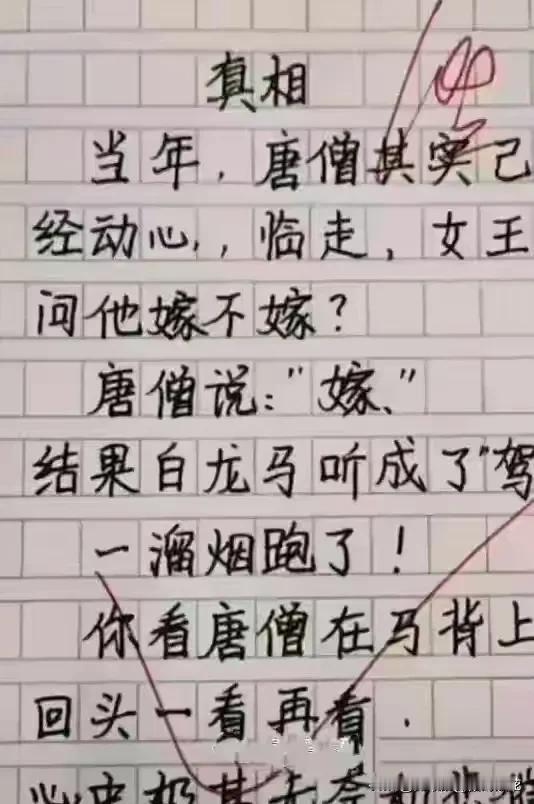 真相
当年，唐僧其实己
经动心，，临走，女王
问他嫁不嫁？
唐僧说："嫁、"
结果白龙马听成了"驾
一溜烟跑了！
你看唐僧在马背上
回头一看再看．
心中极其无奈和